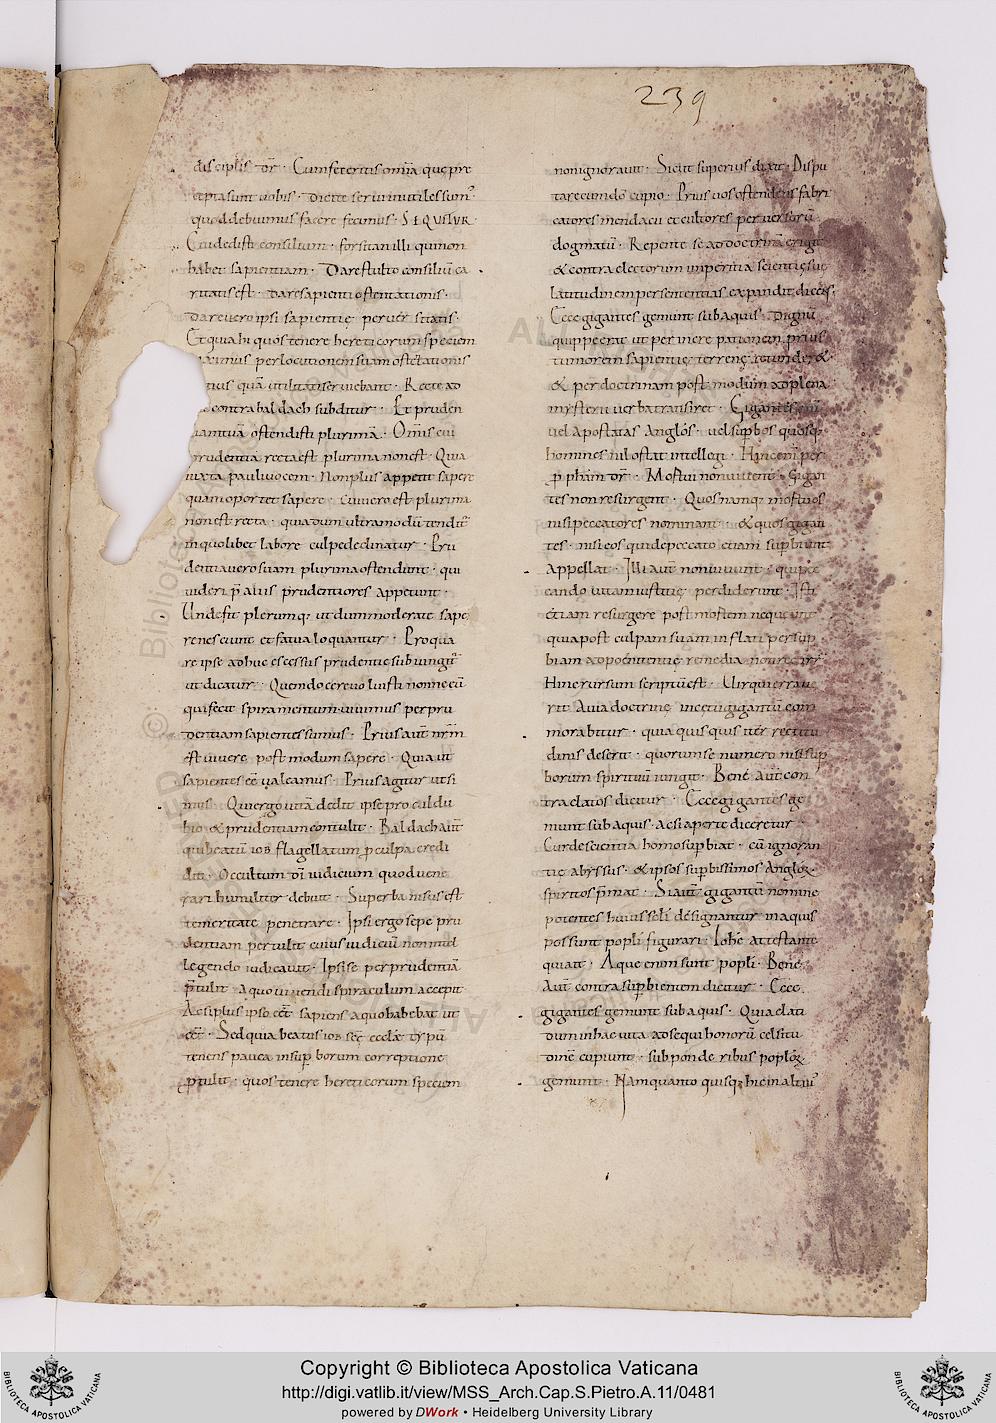 239
disciplis dr̄. Cum feceritis om̄ia que pre
cepta sunt uobis. dicite serui inutiles sum'
quod debuimus facere fecimus. SEQUITUR.
Cui dedisti consilium. forsitan illi qui non
habet sapientiam. Dare stulto consiliū ca
ritatis est. dare sapienti ostentationis.
dare uero ipsi sapientię peruersitatis.
Et quia hi quos tenere hereticorum speciem
diximus per locutionem suam ostētationis
quā utilitati seruiebant. Recte ad
contra baldach subditur. Et pruden
tiam tuā ostendisti plurimā. Omīs cui
prudentia recta est plurima non est. Quia
iuxta pauli uocem. Non plus appetit sapere
quam oportet sapere. Cui uero est plurima
non est recta. quia dum ultra modū tendit'
in quolibet labore culpe declinatur. Pru
dentia uero suam plurima ostendunt. qui
uideri p̄ aliis prudentiores appetunt.
Unde fit plerumq; ut dum moderate sape
re nesciunt et fatua loquantur. Pro qua
re ipse adhuc excessus prudentie subiungit'
ut dicatur. Quem docere uoluisti nonne eū
qui fecit spiramentum. uiuimus per pru
dentiam sapientes sumus. Prius aut̄ nr̄m
est uiuere post modum sapere. Quia ut
sapientes eē ualeamus. Prius agitur ut si
mus. Qui ergo uitā dedit ipse procul du
bio & prudentiam contulit. Baldach aut̄
qui beatū iob flagellatum p̱ culpa credi
dit. Occultum dī iudicium quod uene
rari humiliter debuit. Superba nisus est
temeritate penetrare. Ipsi ergo sepe pru
dentiam pertulit cuius iudiciū non intel
legendo iudicauit. Ipsi se per prudentiā
p̄tulit a quo uiuendi spiraculum accepit
Ac si plus ipso eēt sapiens a quo habebat ut
eēt. Sed quia beatus iob scē ecclae typū
tenens pauca insup̱ borum correptione
p̱tulit. quos tenere hereticorum speciem
non ignorauit. Sicut superius dixit. Dispu
tare cum dō cupio. Prius uos ostendens fabri
catores mendacii et cultores peruersorū
dogmatū. Repente se ad doctrinā erigit
& contra electorum imperitia scientię suę
latitudinem per sententias expandit dicēs.
Ecce gigantes gemunt sub aquis. Dignū
quippe erat ut per increpationem prius
tumorem sapientię terrenę retunderet
& per doctrinam post modum ad plena
mysterii uerba transiret. Gigantes enī
uel apostatas anglos. uel sup̱bos quosq;
homines nil obstat intellegi. Hinc enī per
p̱phām dr̄. Mortui non uiuent. Gigan
tes non resurgent. Quos namq; mortuos
nisi peccatores nominant. & quos gigan
tes. nisi eos qui de peccato etiam sup̱biunt
appellat. Illi aut̄ non uiuunt. quia pec
cando uitam iustitię perdiderunt. Isti
etiam resurgere post mortem nequeunt
quia post culpam suam inflati per sup̱
biam ad pōenitentię remedia non recurr
Hinc rursum scriptū est. Uir qui erraue
rit a uia doctrinę in cętu gigantū com
morabitur. quia quisquis iter rectitu
dinis deserit. quorum se numero nisi sup̱
borum spirituū iungit. Bene aut̄ con
tra elatos dicitur. Ecce gigantes ge
munt sub aquis. ac si aperte diceretur.
Cur de scientia homo sup̱biat. cū ignoran
tię abyssus. & ipsos sup̱bissimos anglox̣.
spiritos p̄mat. Si aut̄ gigantū nomine
potentes huius scli designantur in aquis
possunt popli figurari. Iohē attestante
qui ait. Aque enim sunt popli. Bene
Aut̄ contra sup̱bientem dicitur. Ecce
gigantes gemunt sub aquis. Quia elati
dum in hac uita adsequi honorū celsitu
dinē cupiunt. sub ponderibus poplox̣.
gemunt. Nam quanto quisq; hic in altiu'
Copyright © Biblioteca Apostolica Vaticana
http://digi.vatlib.it/view/MSS_Arch.Cap.S.Pietro.A.11/0481
powered by DWork • Heidelberg University Library
BIBLIOTECA APOSTOLICA VATICANA
BIBLIOTECA APOSTOLICA VATICANA